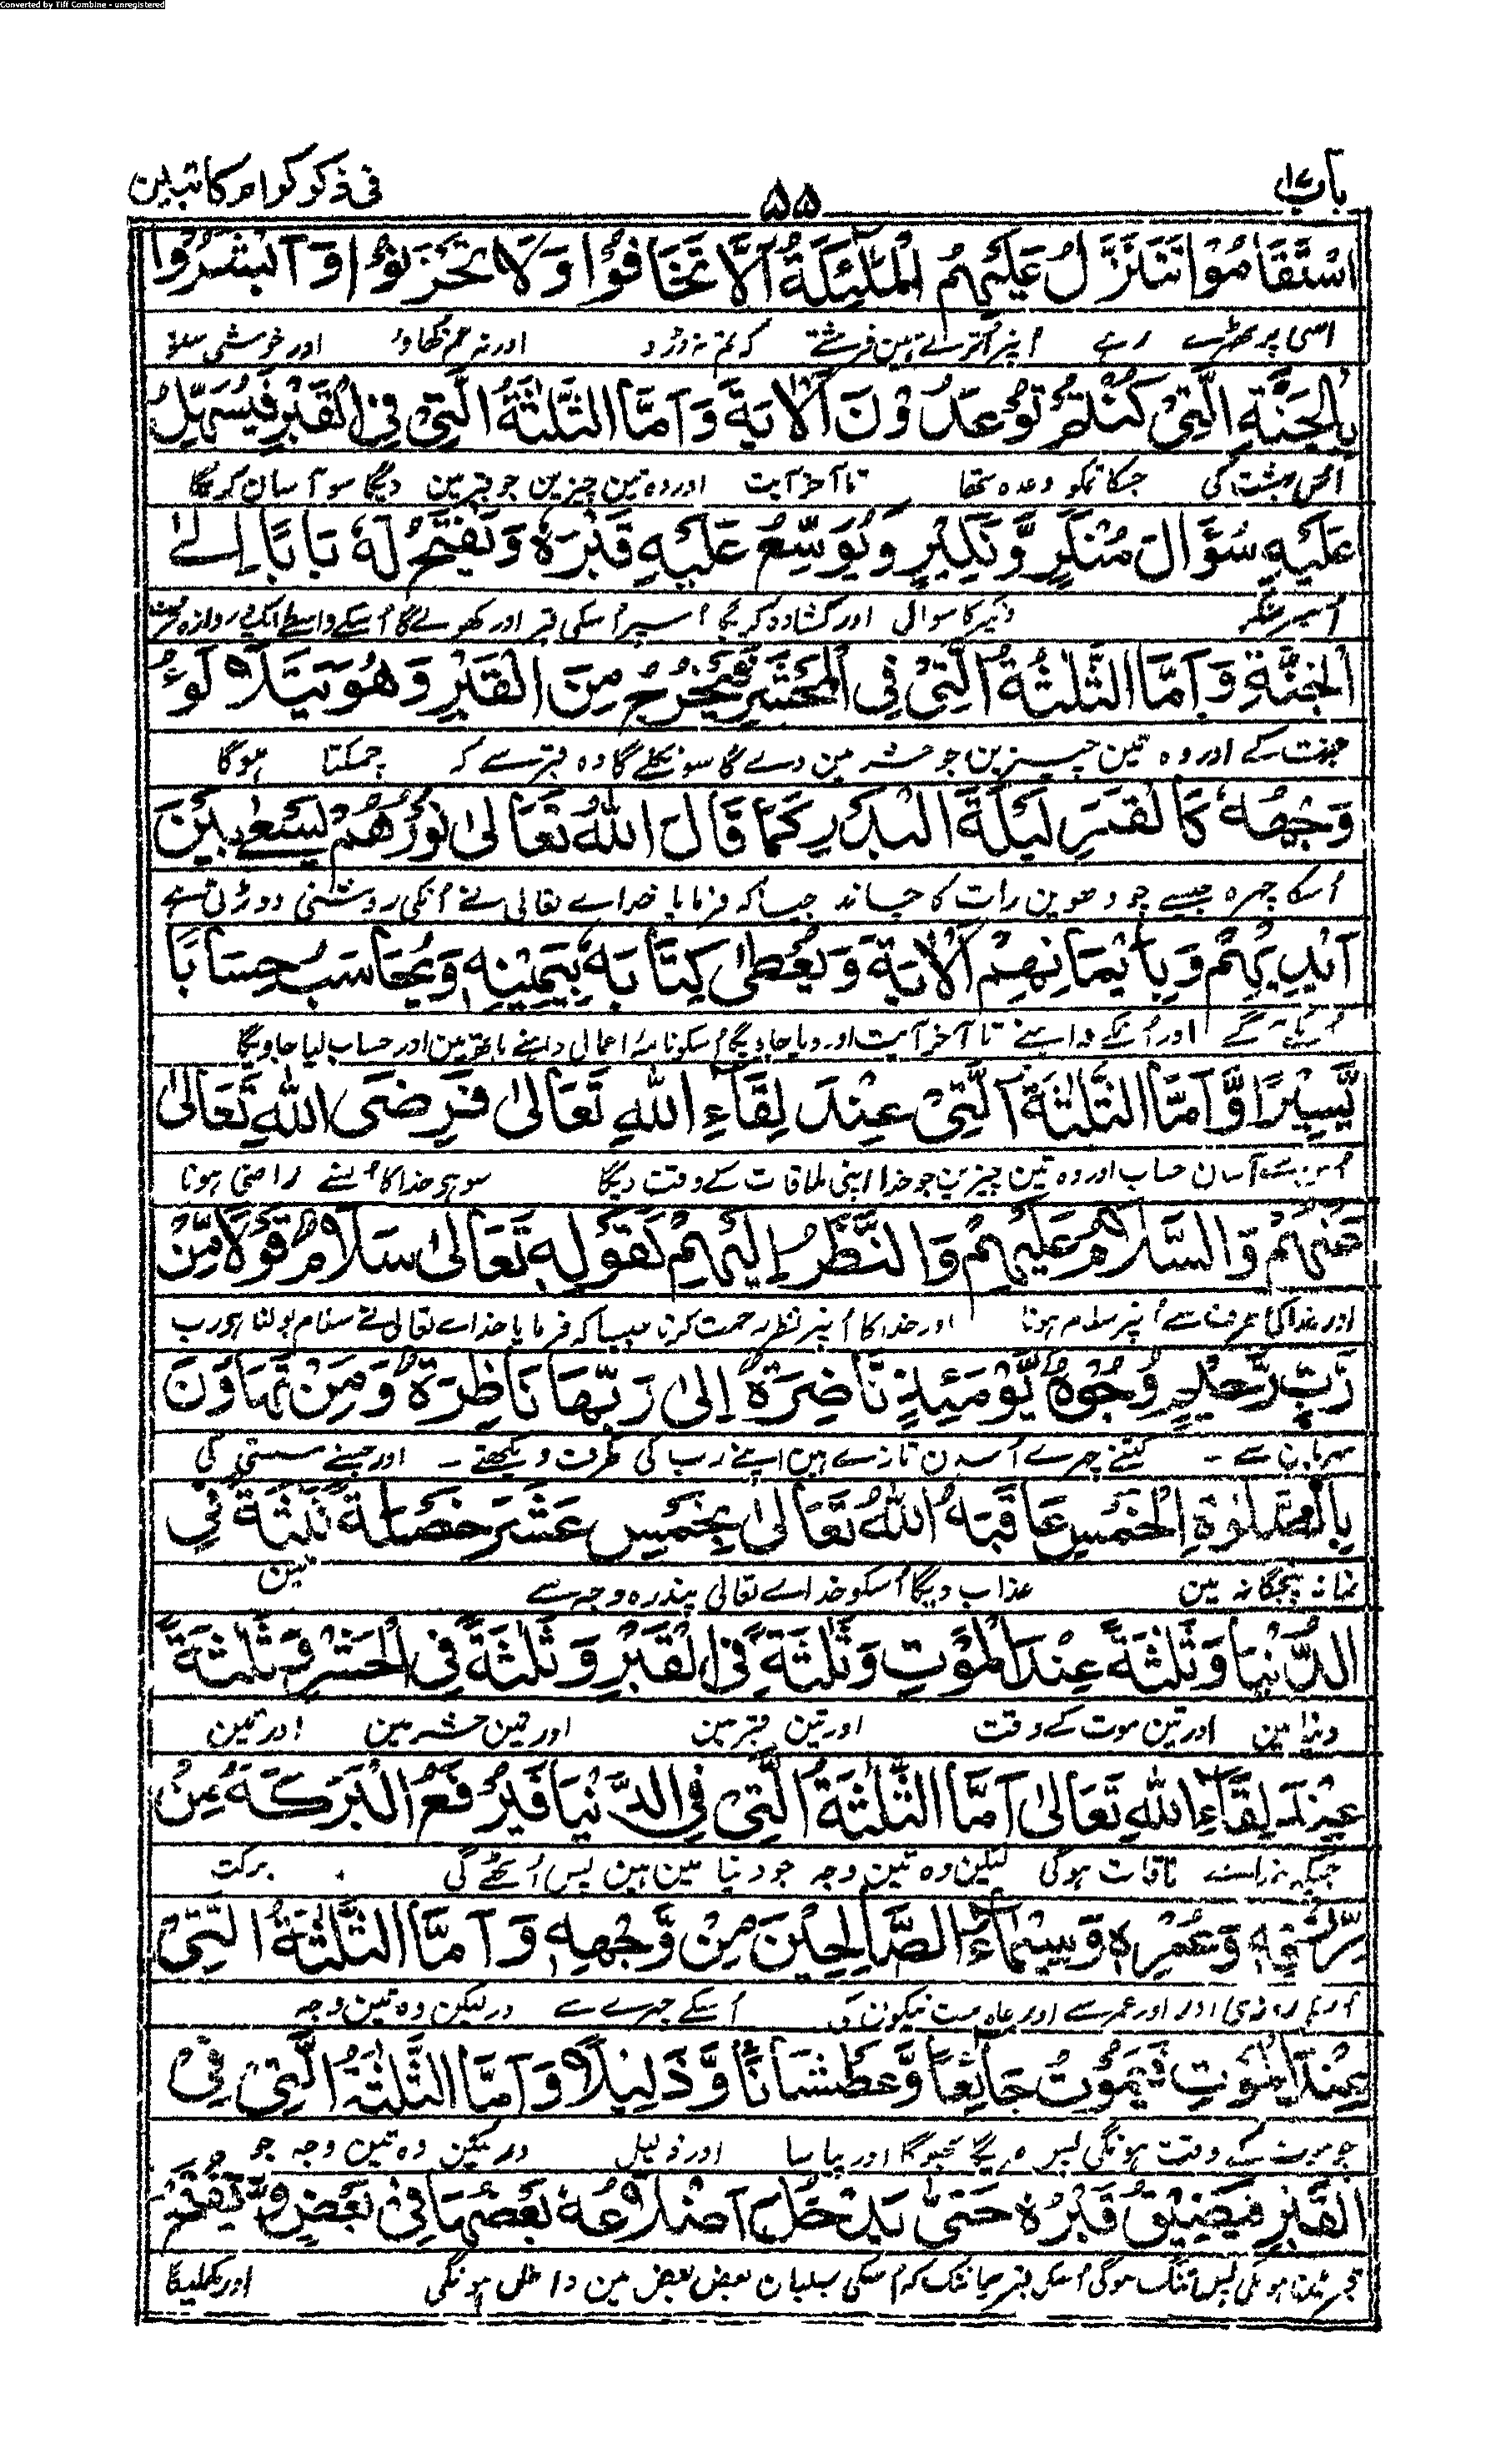 Converted by Tiff Combine - unregistered
باب ١٧
۵۵
فی ذکر کراما کاتبین
اسْتَقَامُوْا تَتَنَزَّلُ عَلَيْهِمُ الْمَلٰٓئِكَةُ اَلَّا تَخَافُوْا وَلَا تَحْزَنُوْا وَاَبْشِرُوْا
اسی پر ٹھہرے رہے اُنپر اُترتے ہین فرشتے کہ تم نہ ڈرو اور نہ غم کھاؤ اور خوشی سنو
بِالْجَنَّةِ الَّتِیْ كُنْتُمْ تُوْعَدُوْنَ الْاٰيَةَ وَاَمَّا الثَّلٰثَةُ الَّتِیْ فِی الْقَبْرِ فَيُسَهِّلُ
اس بہشت کی جسکا تمکو وعدہ تھا تا آخر آیت اور وہ تین چیزین جو قبر مین دیگا سو آسان کریگا
عَلَيْهِ سُؤَالَ مُنْكَرٍ وَّنَكِيْرٍ وَيُوَسِّعُ عَلَيْهِ قَبْرَهٗ وَيَفْتَحُ لَهٗ بَابًا اِلٰے
اُسپر منکر نکیر کا سوال اور کشادہ کریگا اُسپر اُسکی قبر اور کھولے گا اُسکے واسطے ایک دروازہ طرف
الْجَنَّةِ وَاَمَّا الثَّلٰثَةُ الَّتِیْ فِی الْمَحْشَرِ فَيَخْرُجُ مِنَ الْقَبْرِ وَهُوَ يَتَلَاْ لَوءُ
جنت کے اور وہ تین چیزین جو حشر مین دے گا سو نکلے گا وہ قبر سے کہ چمکتا ہوگا
وَجْهُهٗ كَالْقَمَرِ لَيْلَةَ الْبَدْرِ كَمَا قَالَ اللهُ تَعَالٰى نُوْرُهُمْ يَسْعٰى بَيْنَ
اُسکا چہرہ جیسے چودھوین رات کا چاند جیسا کہ فرمایا خداے تعالی نے اُنکی روشنی دوڑتی ہے
اَيْدِيْهِمْ وَبِاَيْمَانِهِمْ الْاٰيَةَ وَيُعْطٰى كِتَابَهٗ بِيَمِيْنِهٖ وَيُحَاسَبُ حِسَابًا
اُنکے آگے اور اُنکے داہنے تا آخر آیت اور دیا جاویگا اُسکو نامۂ اعمال داہنے ہاتھ مین اور حساب لیا جاویگا
يَّسِيْرًا وَّاَمَّا الثَّلٰثَةُ الَّتِیْ عِنْدَ لِقَآءِ اللهِ تَعَالٰى فَرِضَى اللهِ تَعَالٰى
اُس سے آسان حساب اور وہ تین چیزین جو خدا اپنی ملاقات کے وقت دیگا سو ہی خدا کا اُنسے راضی ہونا
عَنْهُمْ وَالسَّلَامُ عَلَيْهِمْ وَالنَّظَرُ اِلَيْهِمْ كَقَوْلِهٖ تَعَالٰى سَلَامٌ قَوْلًا مِّنْ
اور خدا کی طرف سے اُنپر سلام ہونا اور خدا کا اُنپر نظر رحمت کرنا جیسا کہ فرمایا خداے تعالی نے سلام بولنا ہی رب
رَبٍّ رَّحِيْمٍ وُجُوْهٌ يَّوْمَئِذٍ نَّاضِرَةٌ اِلٰى رَبِّهَا نَاظِرَةٌ وَمَنْ تَهَاوَنَ
مہربان سے ۔ کتنے چہرے اُسدن تازے ہین اپنے رب کی طرف دیکھتے ۔ اور جسنے سستی کی
بِالصَّلٰوةِ الْخَمْسِ عَاقَبَهُ اللهُ تَعَالٰى بِخَمْسِ عَشَرَ خَصْلَةً ثَلٰثَةً فِی
نماز پنجگانہ مین عذاب دیگا اُسکو خداے تعالی پندرہ وجہ سے تین
الدُّنْيَا وَثَلٰثَةً عِنْدَ الْمَوْتِ وَثَلٰثَةً فِی الْقَبْرِ وَثَلٰثَةً فِی الْحَشْرِ وَثَلٰثَةً
دنیا مین اور تین موت کے وقت اور تین قبر مین اور تین حشر مین اور تین
عِنْدَ لِقَآءِ اللهِ تَعَالٰى اَمَّا الثَّلٰثَةُ الَّتِیْ فِی الدُّنْيَا فَيُرْفَعُ الْبَرَكَةُ مِنْ
جبکہ خدا سے ملاقات ہوگی لیکن وہ تین وجہ جو دنیا مین ہین پس اُٹھے گی برکت
رِّزْقِهٖ وَعُمْرِهٖ وَسِيْمَآءُ الصَّالِحِيْنَ مِنْ وَّجْهِهٖ وَاَمَّا الثَّلٰثَةُ الَّتِیْ
اور عمر سے اور علامت نیکون کی اُسکے چہرے سے اور لیکن وہ تین وجہ
عِنْدَ الْمَوْتِ فَيَمُوْتُ جَائِعًا وَّعَطْشَانًا وَّذَلِيْلًا وَاَمَّا الثَّلٰثَةُ الَّتِیْ فِی
جو موت کے وقت ہونگی پس مریگا بھوکا اور پیاسا اور ذلیل اور لیکن وہ تین وجہ جو
الْقَبْرِ فَيَضِيْقُ قَبْرُهٗ حَتّٰى يَدْخُلَ اَضْلَاعُهٗ بَعْضُهَا فِیْ بَعْضٍ وَّيَفْتَحُ
قبر مین ہونگی پس تنگ ہوگی اُسکی قبر یہانتک کہ اُسکی پسلیان بعض بعض مین داخل ہونگی اور کھلیگا